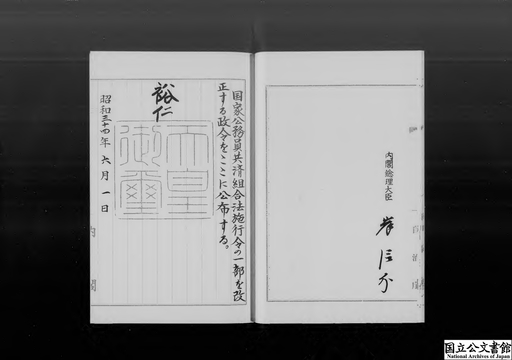 内閣総理大臣
岸信介
国家公務員共済組合法施行令の一部を改
正する政令をここに公布する。
裕仁
天皇
御璽
昭和三十四年 六月 一日
内閣
国立公文書館
National Archives of Japan